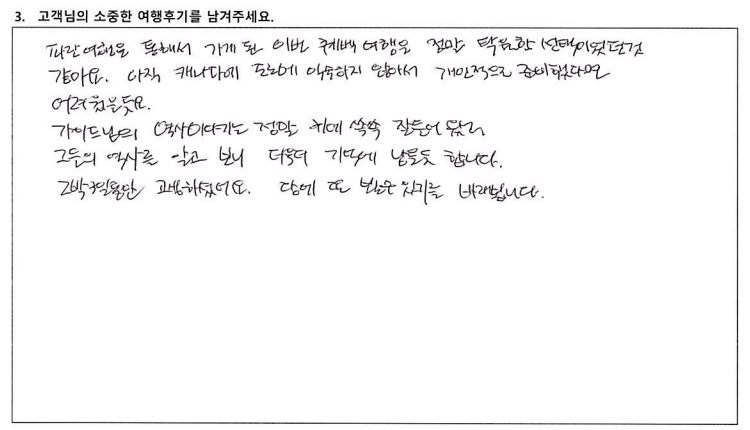 3. 고객님의 소중한 여행후기를 남겨주세요.
파란여행을 통해서 가게 된 이번 퀘벡 여행은 정말 탁월한 선택이었던것
같아요. 아직 캐나다에 도로에 익숙하지 않아서 개인적으로 준비했다면
어려웠을듯요.
가이드님의 역사이야기는 정말 귀에 쏙쏙 잘들어 왔고
그곳의 역사를 알고 보니 더욱더 기억에 남을듯 합니다.
2박3일동안 고생하셨어요. 담에 또 뵐수 있기를 바래봅니다.